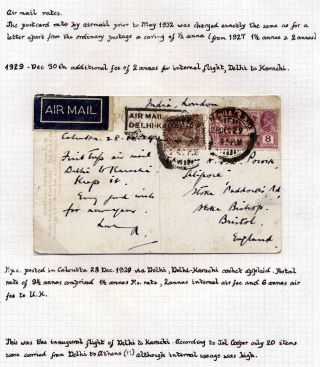 Air mail rates.
The postcard rate by airmail prior to May 1932 was charged exactly the same as for a
letter apart from the ordinary postage a saving of ½ anna (from 1927 1½ annas v 2 annas)
1929 - Dec 30th additional fee of 2 annas for internal flight, Delhi to Karachi.
AIR MAIL
India - London
AIR MAIL
DELHI-KARACHI
28 DEC 29
Calcutta 28
First Trip air mail
Delhi to Karachi
Keep it.
Every good wish
for new year
Love
R.
Lilipore
Stoke Paddocks Rd
Stoke Bishop
Bristol
England
8
P.p.c. posted in Calcutta 28 Dec. 1929 via Delhi, Delhi-Karachi cachet applied. Postal
rate of 9½ annas comprised 1½ annas P.c. rate, 2 annas internal air fee and 6 annas air
fee to U.K.
This was the inaugural flight of Delhi to Karachi. According to Jal Cooper only 20 items
were carried from Delhi to Athens (!!) although internal useage was high.